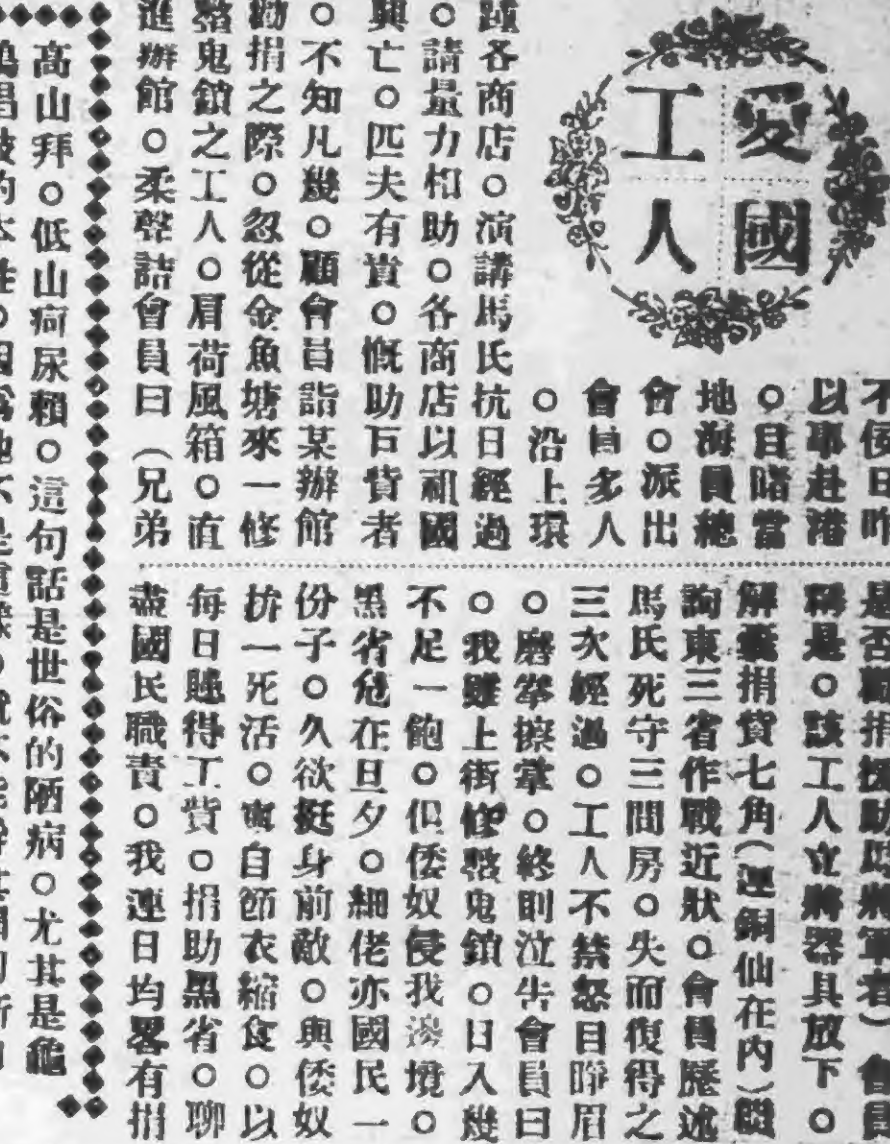 愛國
工人
不佞日昨
以事赴港
○目睹當
地海員總
會○派出
會員多人
○沿上環
踵各商店○演講馬氏抗日經過
○請量力相助○各商店以祖國
興亡○匹夫有責○慨助巨貲者
○不知凡幾○顧會員詣某辦館
勸捐之際○忽從金魚塘來一修
整鬼鎖之工人○肩荷風箱○直
進辦館○柔聲詰會員曰（兄弟
是否勸捐援助馬將軍者）會員
稱是○該工人立將器具放下○
解囊捐貲七角（連銅仙在內）
詢東三省作戰近狀○會員歷述
馬氏死守三間房○失而復得之
三次經過○工人不禁怒目睜眉
○磨拳擦掌○終則泣告會員曰
○我雖上街修整鬼鎖○日入幾
不足一飽○但倭奴侵我邊境○
黑省危在旦夕○細佬亦國民一
份子○久欲挺身前敵○與倭奴
拚一死活○自節衣縮食○以
每日賺得工貲○捐助黑省○聊
盡國民職責○我連日均畧有捐
高山拜○低山疴尿賴○這句話是世俗的陋病○尤其是龜